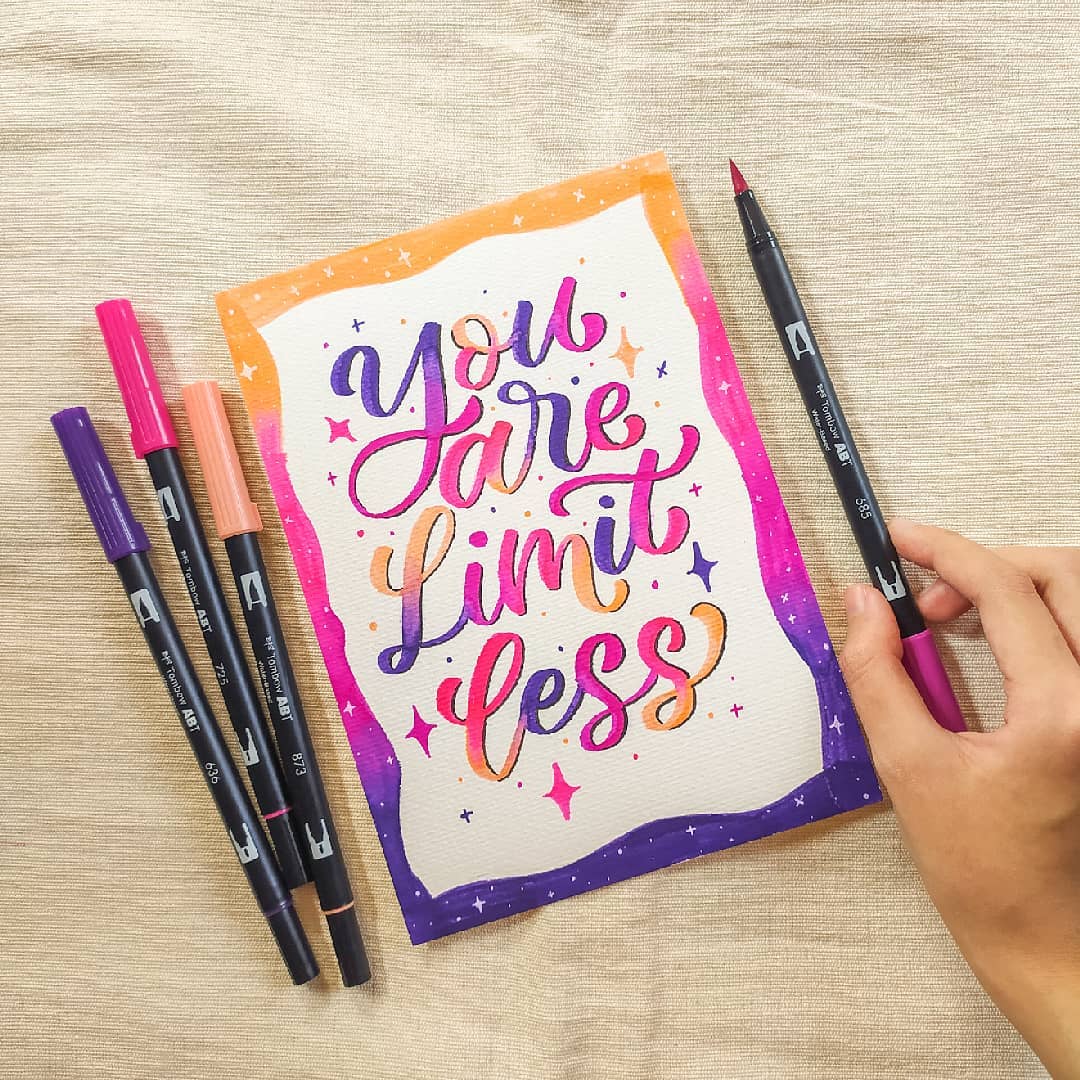 You
are
Limit
less
Tombow ABT
636
Tombow ABT
725
Tombow ABT
873
Tombow ABT
685